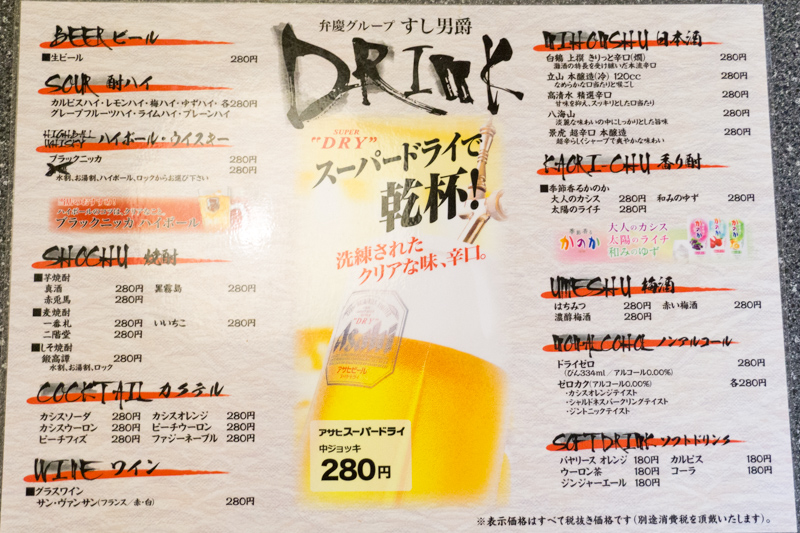 BEER ビール
■生ビール 280円
SOUR 酎ハイ
カルピスハイ・レモンハイ・梅ハイ・ゆずハイ・各280円
グレープフルーツハイ・ライムハイ・プレーンハイ
HIGHBALL WHISKY ハイボール・ウイスキー
ブラックニッカ 280円
280円
水割、お湯割、ハイボール、ロックからお選び下さい
ハイボールのコアは、クリアなコシ。
ブラックニッカ ハイボール
SHOCHU 焼酎
■芋焼酎
真酒 280円 黒霧島 280円
赤兎馬 280円
■麦焼酎
一番札 280円 いいちこ 280円
二階堂 280円
■しそ焼酎
鍛高譚 280円
水割、お湯割、ロック
COCKTAIL カクテル
カシスソーダ 280円 カシスオレンジ 280円
カシスウーロン 280円 ピーチウーロン 280円
ピーチフィズ 280円 ファジーネーブル 280円
WINE ワイン
■グラスワイン
サン・ヴァンサン(フランス/赤・白) 280円
弁慶グループ すし男爵
DRINK
SUPER
"DRY"
スーパードライで
乾杯!
洗練された
クリアな味、辛口。
"DRY"
アサヒビール
アサヒスーパードライ
中ジョッキ
280円
NIHONSHU 日本酒
白鶴 上撰 きりっと辛口(燗) 280円
灘酒の特長を受け継いだ本流辛口
立山 本醸造(冷) 120cc 280円
なめらかな口当たりと喉ごし
高清水 精選辛口 280円
甘味を抑え、スッキリとした口当たり
八海山 280円
淡麗な味わいの中にしっかりとした旨味
景虎 超辛口 本醸造 280円
超辛らしくシャープで爽やかな味わい
KAORI-CHU 香り酎
■季節香るかのか
大人のカシス 280円 和みのゆず 280円
太陽のライチ 280円
季節香る
かのか
大人のカシス
太陽のライチ
和みのゆず
UMESHU 梅酒
はちみつ 280円 赤い梅酒 280円
濃醇梅酒 280円
NONALCOHOL ノンアルコール
ドライゼロ 280円
(びん334ml/アルコール0.00%)
ゼロカク(アルコール0.00%) 各280円
・カシスオレンジテイスト
・シャルドネスパークリングテイスト
・ジントニックテイスト
SOFTDRINK ソフトドリンク
バヤリース オレンジ 180円 カルピス 180円
ウーロン茶 180円 コーラ 180円
ジンジャーエール 180円
※表示価格はすべて税抜き価格です(別途消費税を頂戴いたします)。